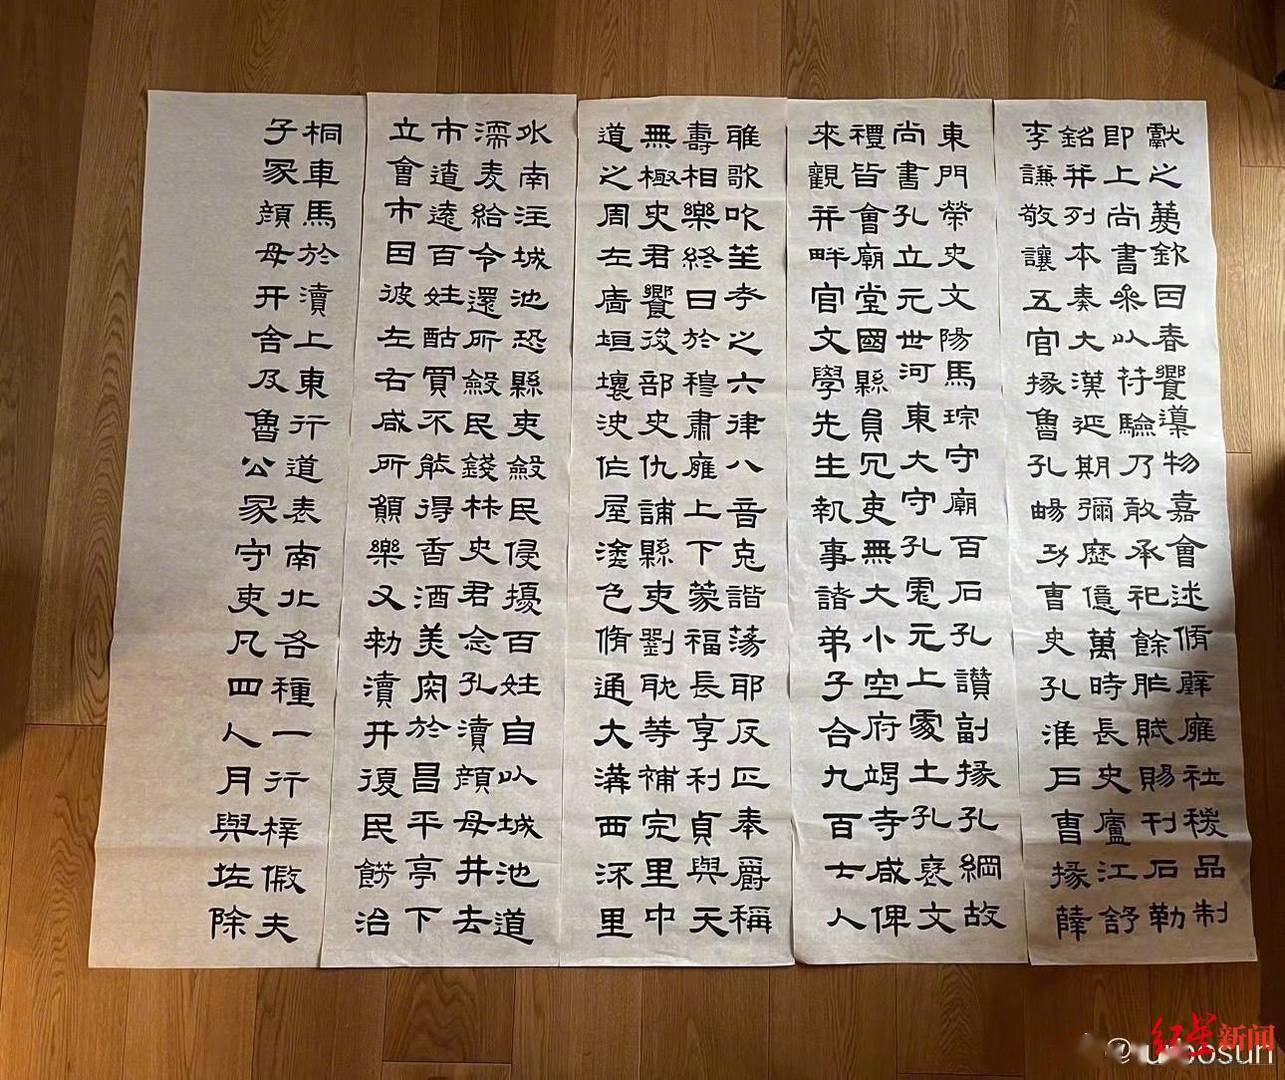 獻之薎欽因春饗導物嘉會述脩辟廱社稷品制
即上尚書參以符驗乃敢承祀餘胙賦賜刊石勒
銘并列本奏大漢延期彌歷億萬時長史廬江舒
李謙敬讓五官掾魯孔暘功曹史孔淮戶曹掾薛
東門榮史文陽馬琮守廟百石孔讚副掾孔綱故
尚書孔立元世河東大守孔彪元上處土孔褎文
禮皆會廟堂國縣員冗吏無大小空府竭寺咸俾
來觀并畔官文學先生執事諸弟子合九百士人
雅歌吹笙考之六律八音克諧蕩耶反正奉爵稱
壽相樂終日於穆肅廱上下蒙福長享利貞與天
無極史君饗後部史仇誧縣吏劉耽等補完里中
道之周左廧垣壞決作屋塗色脩通大溝西流里
水南注城池恐縣吏斂民侵擾百姓自以城池道
濡麦給令還所斂民錢林史君念孔瀆顏母井去
市遼遠百姓酤買不能得香酒美肉於昌平亭下
立會市因彼左右咸所願樂又勑瀆井復民餝治
桐車馬於瀆上東行道表南北各種一行梓假夫
子冢顏母开舍及魯公冢守吏凡四人月與佐除
红星新闻